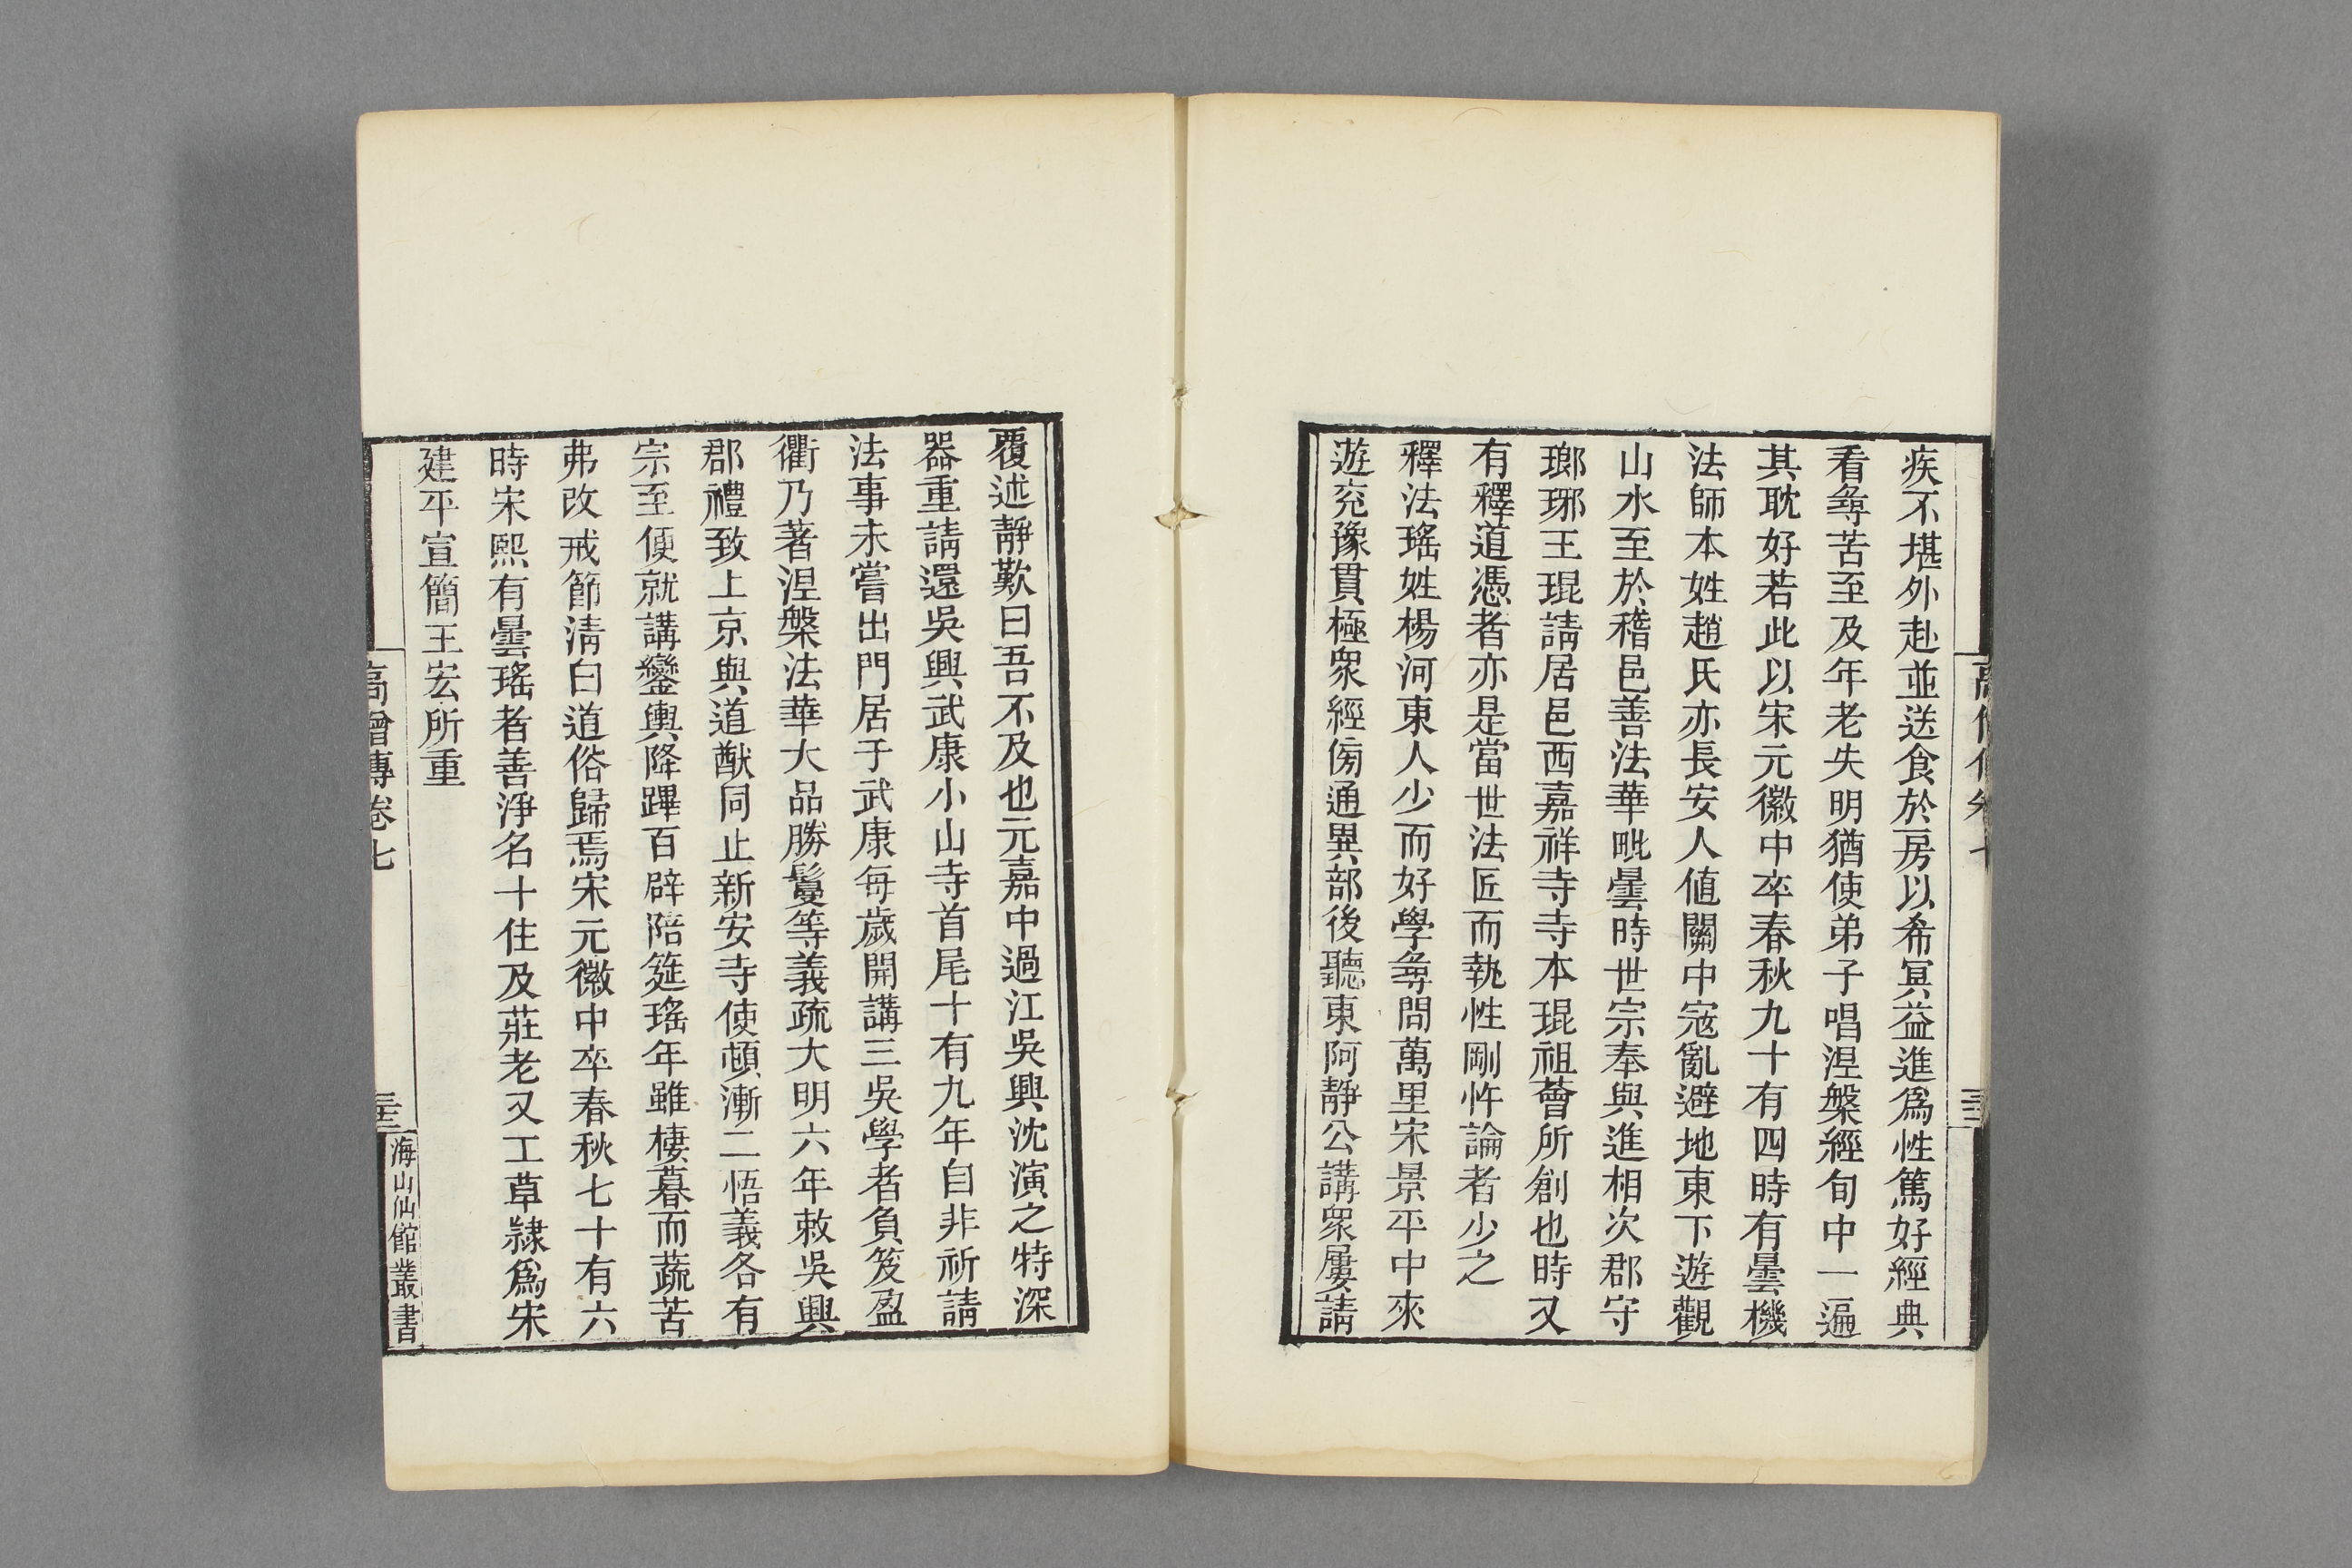 疾不堪外赴並送食於房以希冥益進爲性篤好經典
看尋苦至及年老失明猶使弟子唱涅槃經旬中一遍
其耽好若此以宋元徽中卒春秋九十有四時有曇機
法師本姓趙氏亦長安人値關中宼亂避地東下遊觀
山水至於稽邑善法華毗曇時世宗奉與進相次郡守
瑯琊王琨請居邑西嘉祥寺寺本琨祖薈所創也時又
有釋道憑者亦是當世法匠而執性剛忤論者少之
釋法瑤姓楊河東人少而好學尋問萬里宋景平中來
遊兖豫貫極衆經傍通異部後聽東阿靜公講衆屢請
覆述靜歎曰吾不及也元嘉中過江吳興沈演之特深
器重請還吳興武康小山寺首尾十有九年自非祈請
法事未嘗出門居于武康每歲開講三吳學者負笈盈
衢乃著涅槃法華大品勝鬘等義疏大明六年敕吳興
郡禮致上京與道猷同止新安寺使頓漸二悟義各有
宗至便就講鑾輿降蹕百辟陪筵瑤年雖棲暮而蔬苦
弗改戒節清白道俗歸焉宋元徽中卒春秋七十有六
時宋熙有曇瑤者善淨名十住及莊老又工草隷爲宋
建平宣簡王宏所重
高僧傳卷七
海山仙館叢書